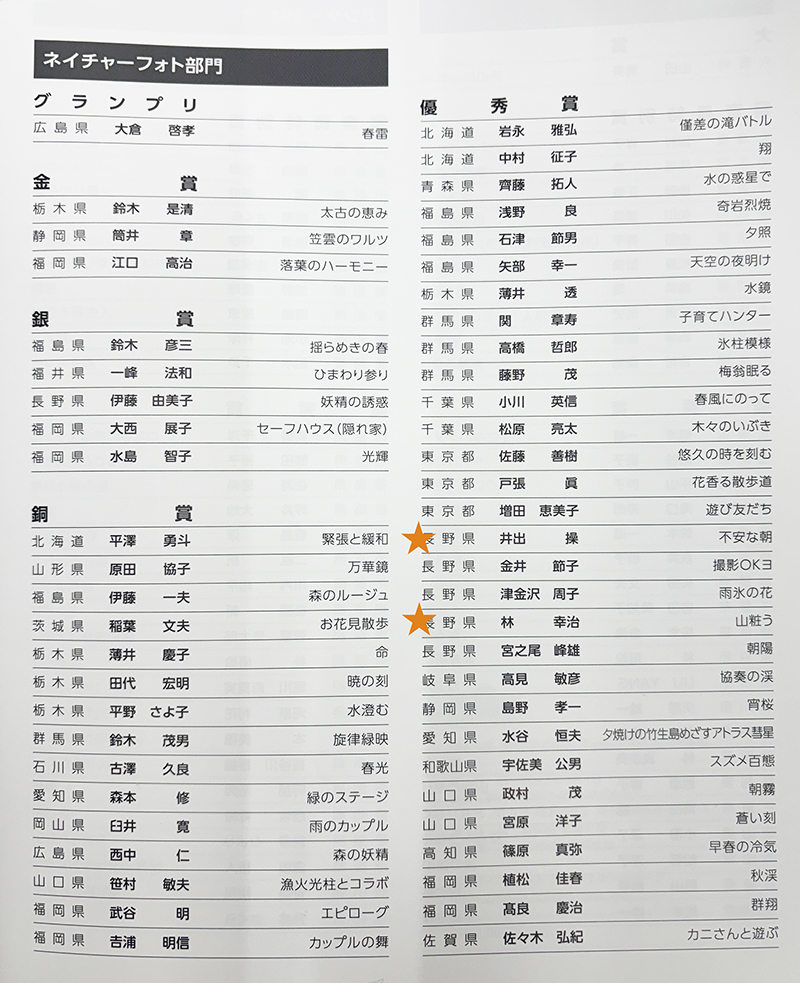 ネイチャーフォト部門
グランプリ
広島県 大倉 啓孝 春雷
金賞
栃木県 鈴木 是清 太古の恵み
静岡県 筒井 章 笠雲のワルツ
福岡県 江口 高治 落葉のハーモニー
銀賞
福島県 鈴木 彦三 揺らめきの春
福井県 一峰 法和 ひまわり参り
長野県 伊藤 由美子 妖精の誘惑
福岡県 大西 展子 セーフハウス(隠れ家)
福岡県 水島 智子 光輝
銅賞
北海道 平澤 勇斗 緊張と緩和
山形県 原田 協子 万華鏡
福島県 伊藤 一夫 森のルージュ
茨城県 稲葉 文夫 お花見散歩
栃木県 薄井 慶子 命
栃木県 田代 宏明 暁の刻
栃木県 平野 さよ子 水澄む
群馬県 鈴木 茂男 旋律緑映
石川県 古澤 久良 春光
愛知県 森本 修 緑のステージ
岡山県 臼井 寛 雨のカップル
広島県 西中 仁 森の妖精
山口県 笹村 敏夫 漁火光柱とコラボ
福岡県 武谷 明 エピローグ
福岡県 吉浦 明信 カップルの舞
優秀賞
北海道 岩永 雅弘 僅差の滝バトル
北海道 中村 征子 翔
青森県 齊藤 拓人 水の惑星で
福島県 浅野 良 奇岩烈焼
福島県 石津 節男 夕照
福島県 矢部 幸一 天空の夜明け
栃木県 薄井 透 水鏡
群馬県 関 章寿 子育てハンター
群馬県 高橋 哲郎 氷柱模様
群馬県 藤野 茂 梅翁眠る
千葉県 小川 英信 春風にのって
千葉県 松原 亮太 木々のいぶき
東京都 佐藤 善樹 悠久の時を刻む
東京都 戸張 眞 花香る散歩道
東京都 増田 恵美子 遊び友だち
長野県 井出 操 不安な朝
長野県 金井 節子 撮影OKヨ
長野県 津金沢 周子 雨氷の花
長野県 林 幸治 山粧う
長野県 宮之尾 峰雄 朝陽
岐阜県 高見 敏彦 協奏の渓
静岡県 島野 孝一 宵桜
愛知県 水谷 恒夫 夕焼けの竹生島めざすアトラス彗星
和歌山県 宇佐美 公男 スズメ百態
山口県 政村 茂 朝霧
山口県 宮原 洋子 蒼い刻
高知県 篠原 真弥 早春の冷気
福岡県 植松 佳春 秋渓
福岡県 髙良 慶治 群翔
佐賀県 佐々木 弘紀 カニさんと遊ぶ